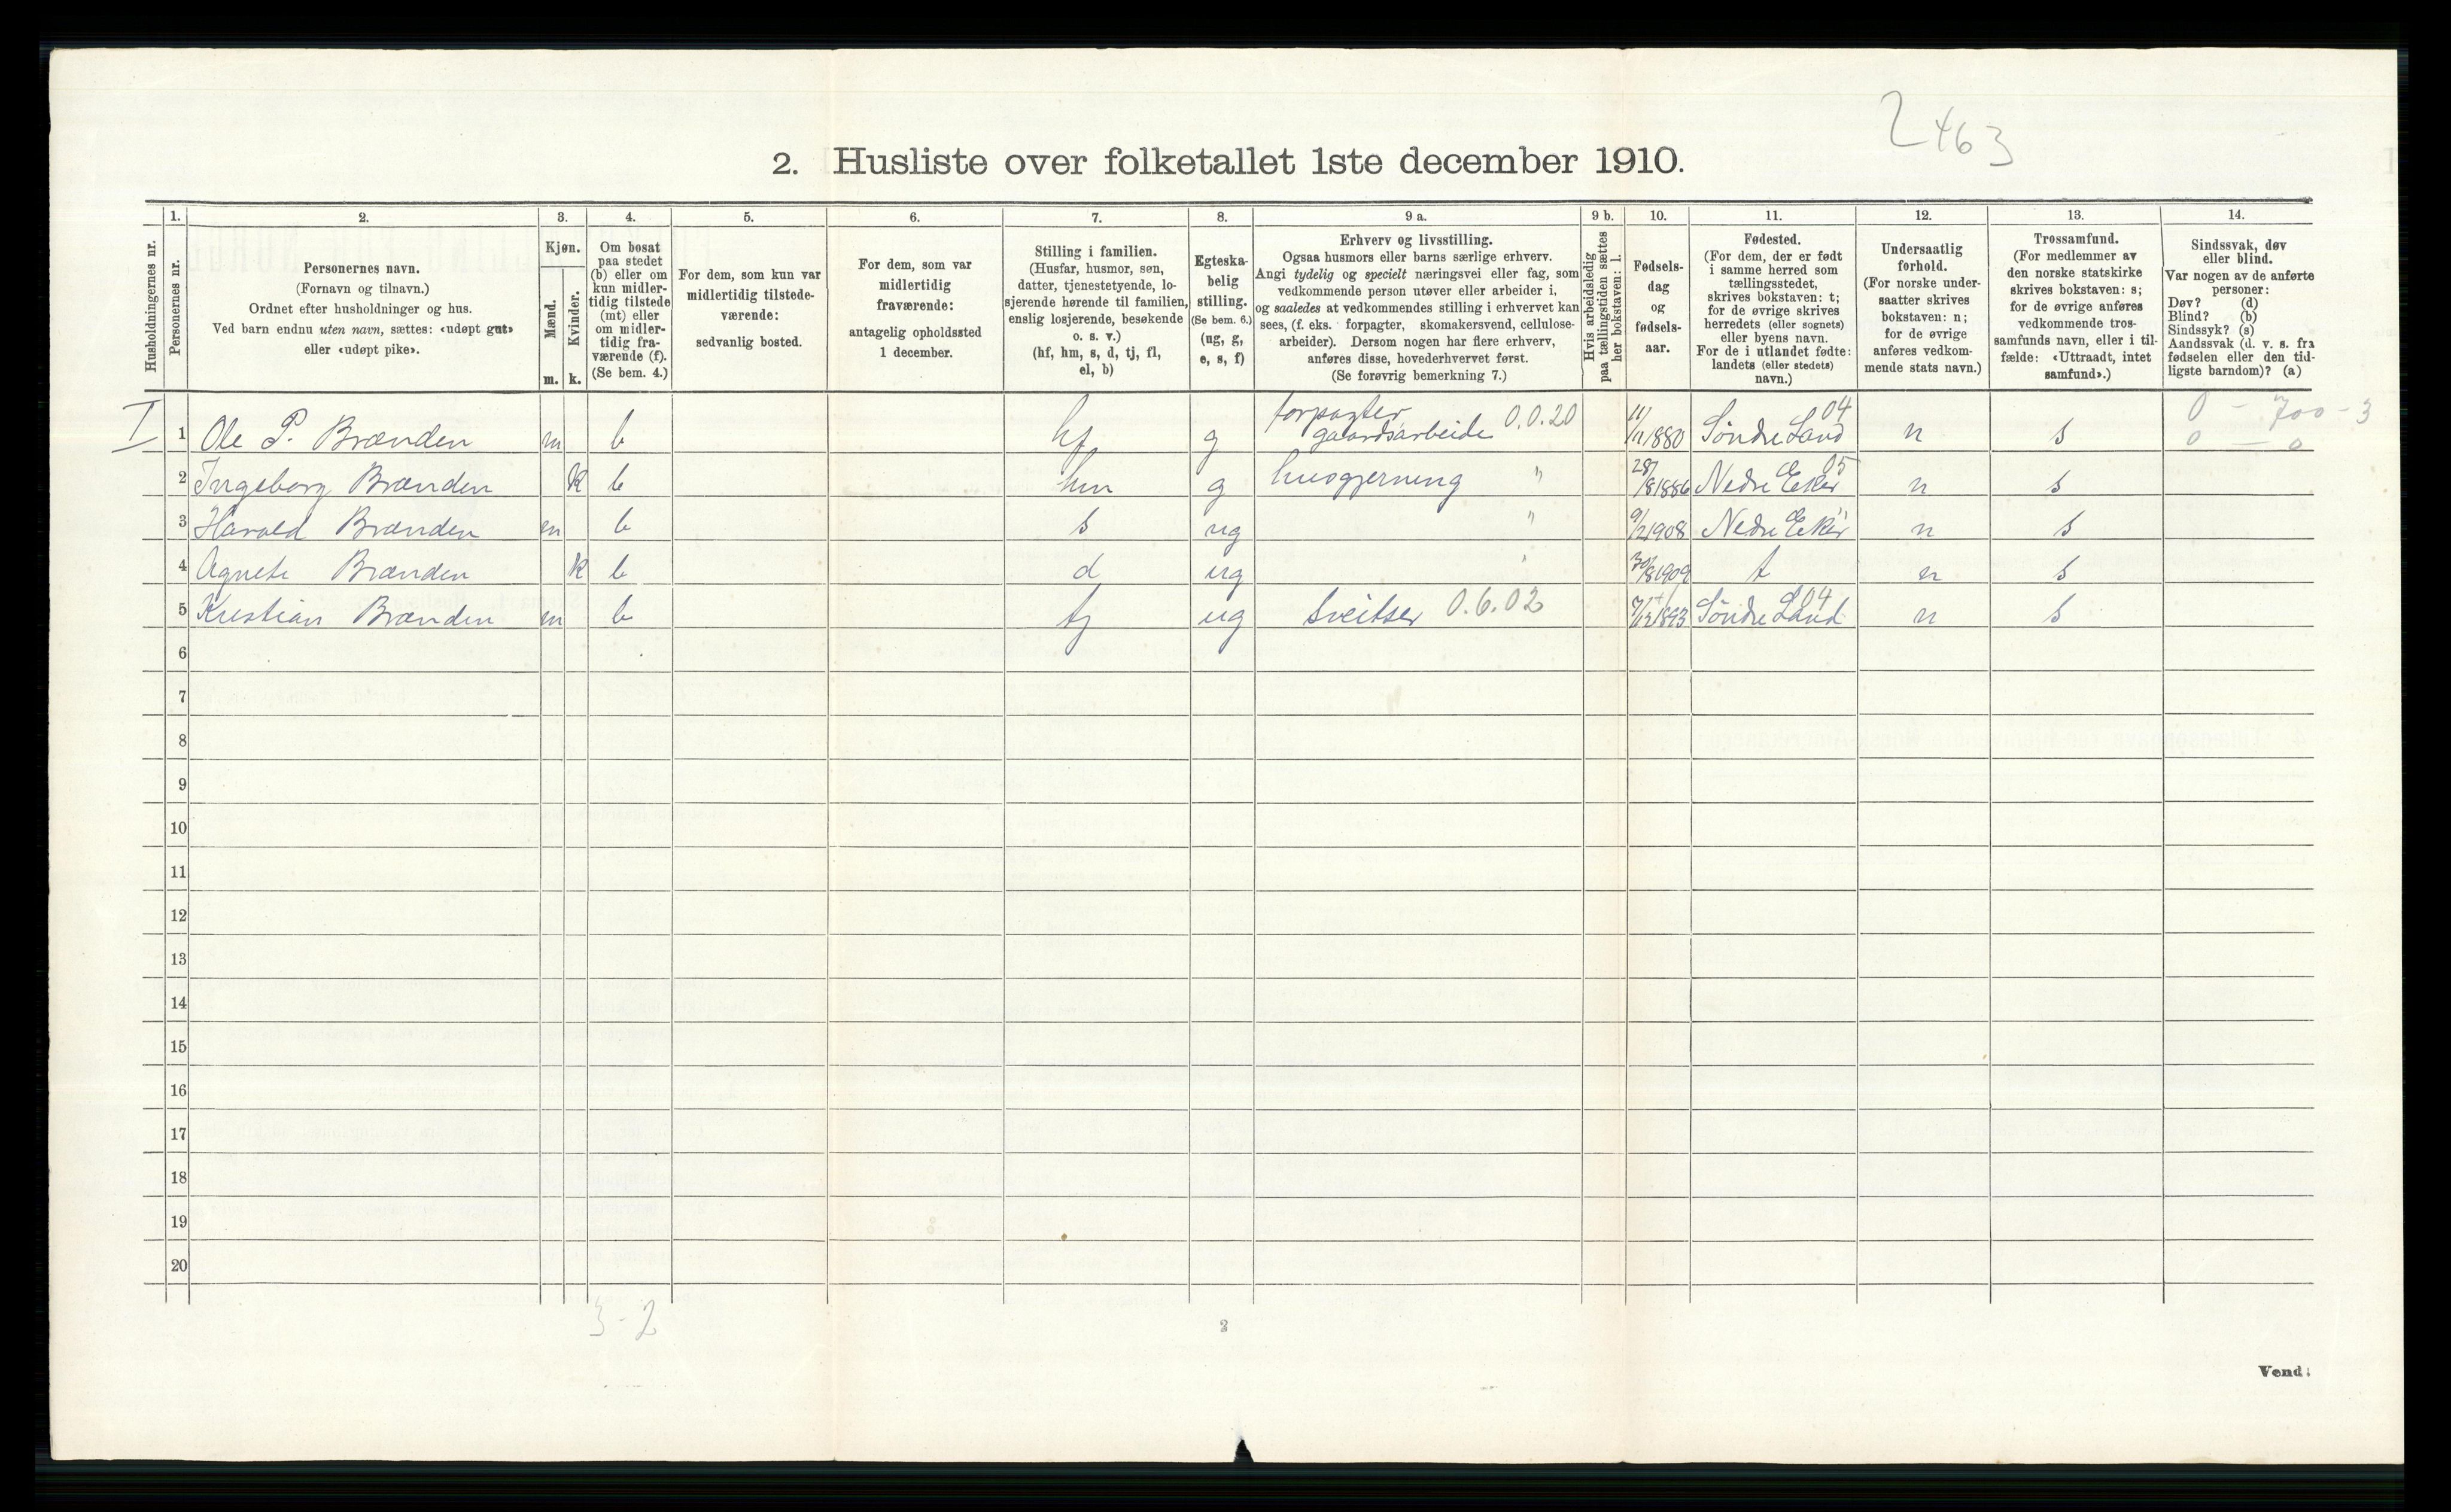 2463
2. Husliste over folketallet 1ste december 1910.
Husholdningernes nr.
1.
Personernes nr.
2.
Personernes navn.
(Fornavn og tilnavn.)
Ordnet efter husholdninger og hus.
Ved barn endnu uten navn, sættes: «udøpt gut»
eller «udøpt pike».
3.
Kjøn.
Mænd.
m.
Kvinder.
k.
4.
Om bosat
paa stedet
(b) eller om
kun midler-
tidig tilstede
(mt) eller
om midler-
tidig fra-
værende (f).
(Se bem. 4.)
5.
For dem, som kun var
midlertidig tilstede-
værende:
sedvanlig bosted.
6.
For dem, som var
midlertidig
fraværende:
antagelig opholdssted
1 december.
7.
Stilling i familien.
(Husfar, husmor, søn,
datter, tjenestetyende, lo-
sjerende hørende til familien,
enslig losjerende, besøkende
o. s. v.)
(hf, hm, s, d, tj, fl,
el, b)
8.
Egteska-
belig
stilling.
(Se bem. 6.)
(ug, g,
e, s, f)
9 a.
Erhverv og livsstilling.
Ogsaa husmors eller barns særlige erhverv.
Angi tydelig og specielt næringsvei eller fag, som
vedkommende person utøver eller arbeider i,
og saaledes at vedkommendes stilling i erhvervet kan
sees, (f. eks. forpagter, skomakersvend, cellulose-
arbeider). Dersom nogen har flere erhverv,
anføres disse, hovederhvervet først.
(Se forøvrig bemerkning 7.)
9 b.
Hvis arbeidsledig
paa tællingstiden sættes
her bokstaven: l.
10.
Fødsels-
dag
og
fødsels-
aar.
11.
Fødested.
(For dem, der er født
i samme herred som
tællingsstedet,
skrives bokstaven: t;
for de øvrige skrives
herredets (eller sognets)
eller byens navn.
For de i utlandet fødte:
landets (eller stedets)
navn.)
12.
Undersaatlig
forhold.
(For norske under-
saatter skrives
bokstaven: n;
for de øvrige
anføres vedkom-
mende stats navn.)
13.
Trossamfund.
(For medlemmer av
den norske statskirke
skrives bokstaven: s;
for de øvrige anføres
vedkommende tros-
samfunds navn, eller i til-
fælde: «Uttraadt, intet
samfund».)
14.
Sindssvak, døv
eller blind.
Var nogen av de anførte
personer:
Døv? (d)
Blind? (b)
Sindssyk? (s)
Aandssvak (d. v. s. fra
fødselen eller den tid-
ligste barndom)? (a)
I 1 Ole P. Brænden m b hf g forpagter gaardsarbeide 0.0.20 11/11 1880 Søndre Land 04 n s 0 - 700 - 3
0 — 0
2 Ingeborg Brænden k b hm g husgjerning " 28/8 1886 Nedre Eker 05 n s
3 Harald Brænden m b s ug " 9/2 1908 Nedre Eker " n s
4 Agnete Brænden k b d ug 30/8 1909 t n s
5 Kristian Brænden m b tj ug Sveitser 0.6.02 7/12 1893 Søndre Land 04 n s
6
7
8
9
10
11
12
13
14
15
16
17
18
19
20
3-2
2
Vend!